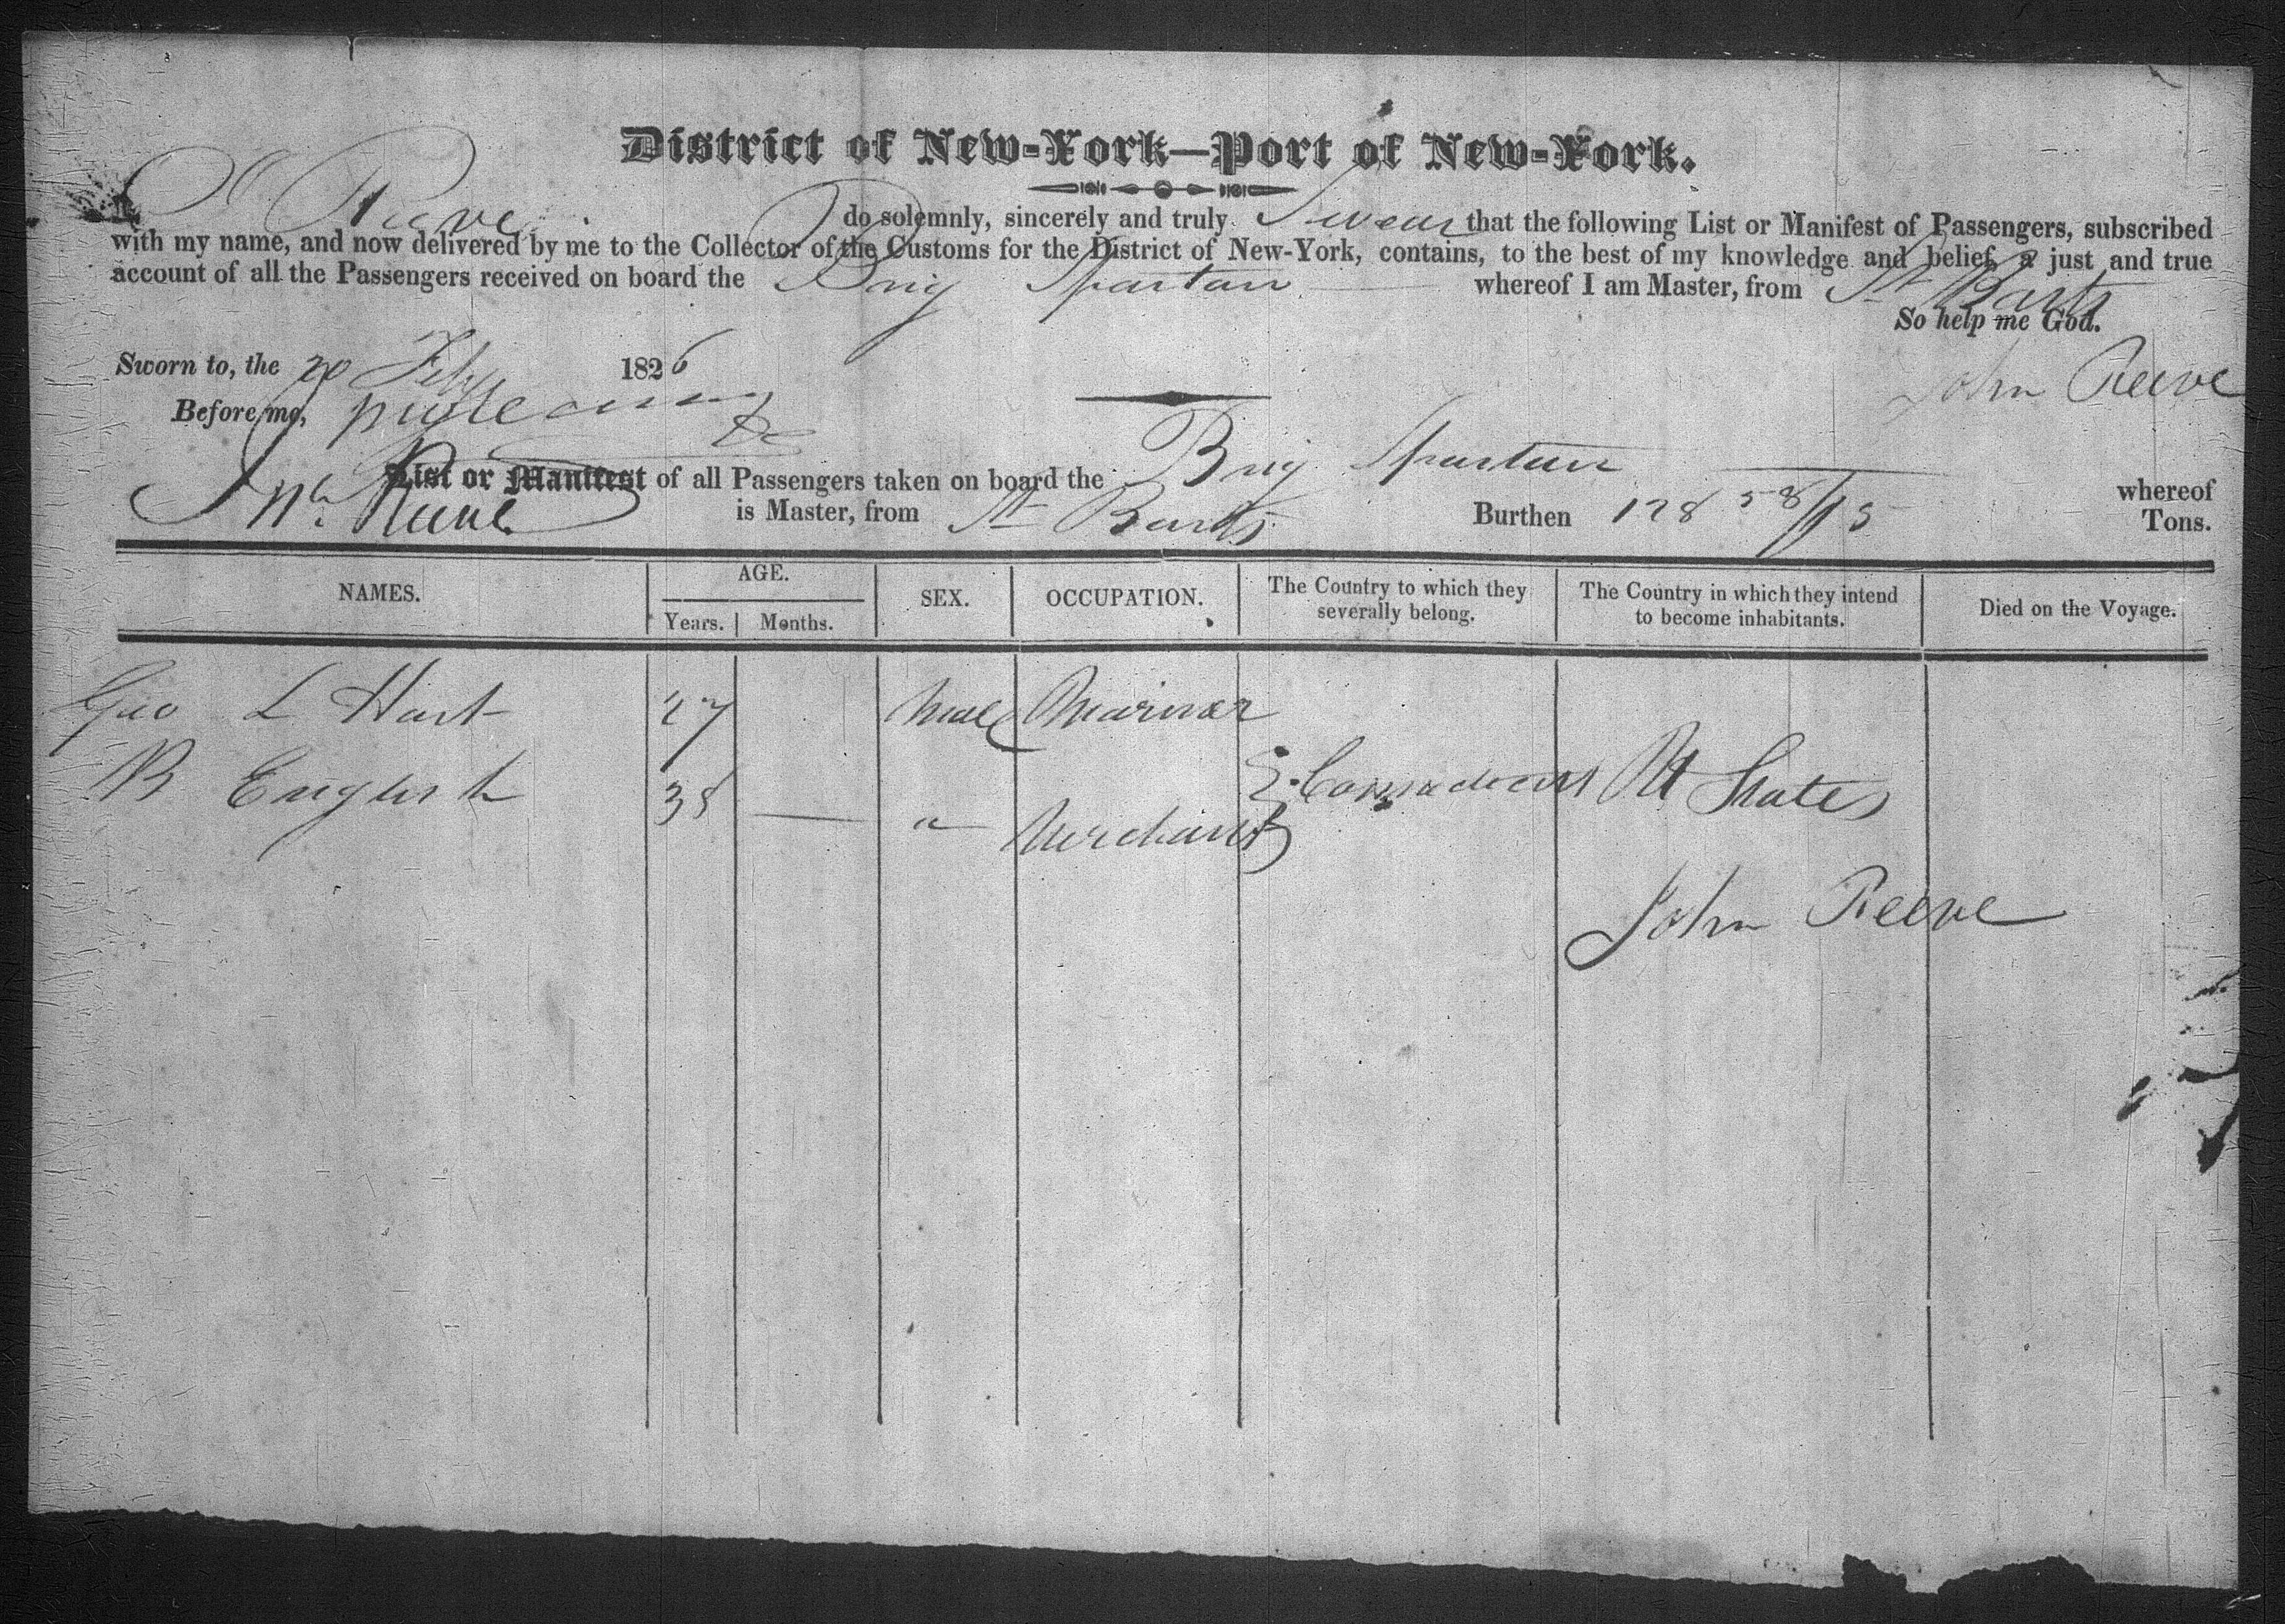 District of New-York—Port of New-York.
I, J Reeve do solemnly, sincerely and truly Swear that the following List or Manifest of Passengers, subscribed
with my name, and now delivered by me to the Collector of the Customs for the District of New-York, contains, to the best of my knowledge and belief, a just and true
account of all the Passengers received on board the Brig Spartan whereof I am Master, from St Barts
So help me God.
Sworn to, the 20 Feby 1826
John Reeve
Before me,
List or Manifest of all Passengers taken on board the Brig Spartan whereof
Jno. Reeve is Master, from St Barts Burthen 128 58/95 Tons.
NAMES. AGE. SEX. OCCUPATION. The Country to which they severally belong. The Country in which they intend to become inhabitants. Died on the Voyage.
Years. Months.
Geo L Hart 27 Male Mariner
B English 38 — " Merchant
U States
John Reeve